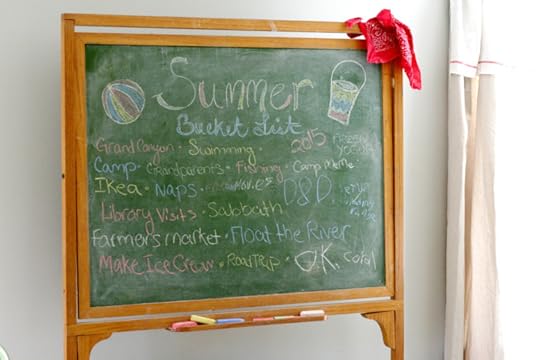 Summer
Bucket List
Grand Canyon • Swimming • 2015
Camp • Grandparents • Fishing • Camp Meme
Ikea • Naps • Movies D&D
Library Visits • Sabbath
Farmer's market • Float the River
Make Ice Cream • Road Trip • OK,